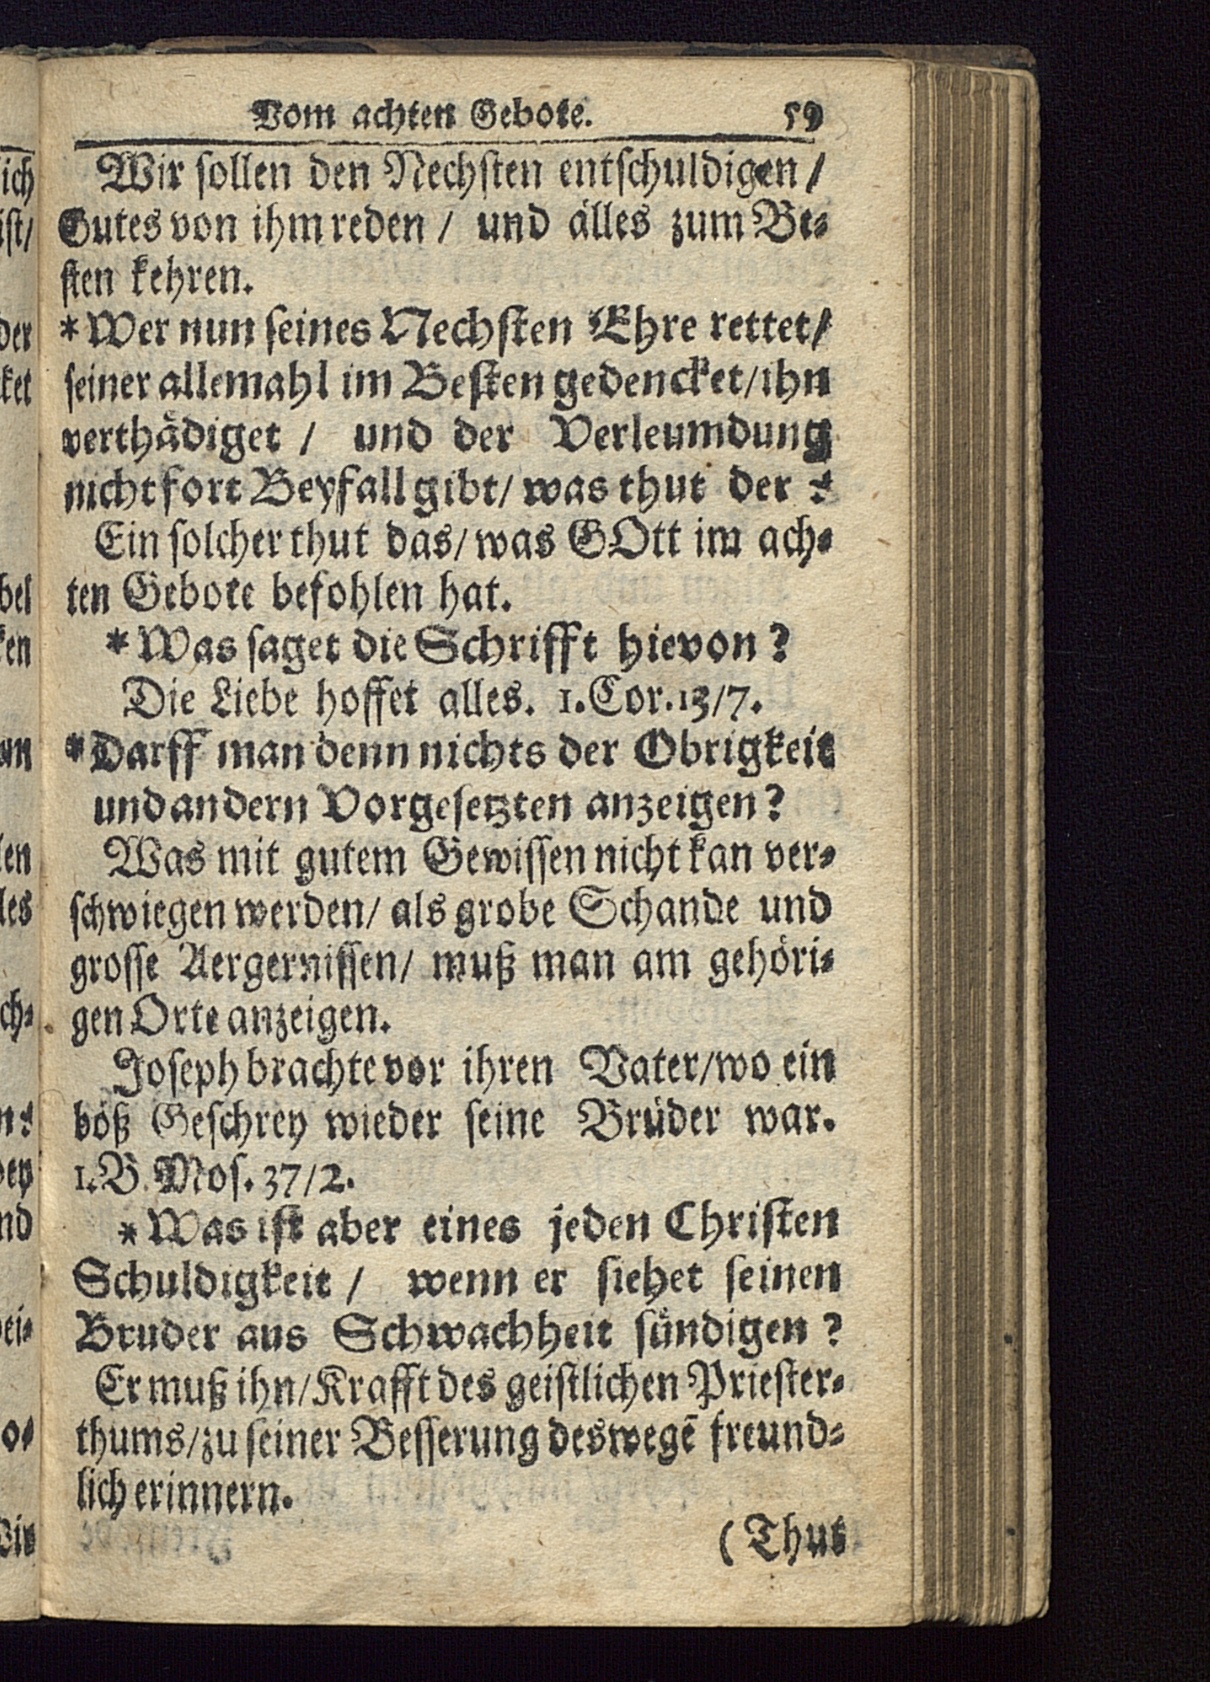 Vom achten Gebote. 59
Wir sollen den Nechsten entschuldigen /
Gutes von ihm reden / und alles zum Be-
sten kehren.
* Wer nun seines Nechsten Ehre rettet /
seiner allemahl im Besten gedencket / ihn
verthädiget / und der Verleumdung
nicht fort Beyfall gibt / was thut der ?
Ein solcher thut das / was GOtt im ach-
ten Gebote befohlen hat.
* Was saget die Schrifft hievon ?
Die Liebe hoffet alles. 1. Cor. 13/7.
* Darff man denn nichts der Obrigkeit
und andern Vorgesetzten anzeigen ?
Was mit gutem Gewissen nicht kan ver-
schwiegen werden / als grobe Schande und
grosse Aergernissen / muß man am gehöri-
gen Orte anzeigen.
Joseph brachte vor ihren Vater / wo ein
böß Geschrey wieder seine Brüder war.
1. B. Mos. 37/2.
* Was ist aber eines jeden Christen
Schuldigkeit / wenn er siehet seinen
Bruder aus Schwachheit sündigen ?
Er muß ihn / Krafft des geistlichen Priester-
thums / zu seiner Besserung deswegẽ freund-
lich erinnern.
(Thut